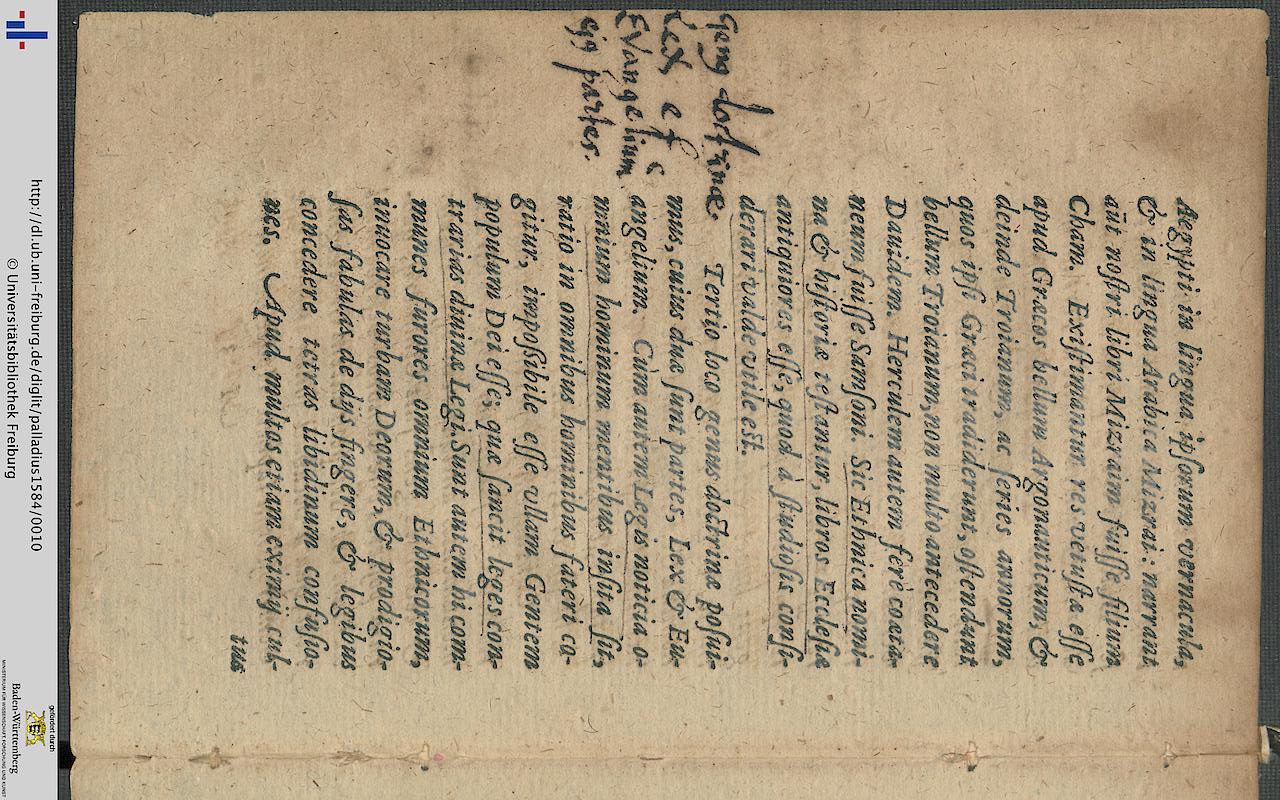 Aegypti in lingua ipsorum vernacula,
& in lingua Arabica Mizrai: narrant
aūt nostri libri Mizraim fuisse filium
Cham. Existimantur res vetustæ esse
apud Græcos bellum Argonauticum, &
deinde Troianum, ac series annorum,
quos ipsi Græci tradiderunt, ostendunt
bellum Troianum, non multo antecedere
Dauidem. Herculem autem ferè coæta-
neum fuisse Samsoni. Sic Ethnica nomi-
na & historiæ testantur, libros Ecclesiæ
antiquiores esse, quod à studiosis consi-
derari valde vtile est.
Tertio loco genus doctrinæ posui-
mus, cuius duæ sunt partes, Lex & Eu-
angelium. Cùm autem Legis noticia o-
mnium hominum mentibus insita sit,
ratio in omnibus hominibus fateri co-
gitur, impoßibile esse vllam Gentem
populum Dei esse; quæ sancit leges con-
trarias diuinæ Legi. Sunt autem hi com-
munes furores omnium Ethnicorum,
inuocare turbam Deorum, & prodigio-
sas fabulas de dijs fingere, & legibus
concedere tetras libidinum confusio-
nes. Apud multos etiam eximij cul-
tus
doctrinæ.
Lex et
Evangelium
partes.
http://dl.ub.uni-freiburg.de/diglit/palladius1584/0010
© Universitätsbibliothek Freiburg
gefördert durch
Baden-Württemberg
MINISTERIUM FÜR WISSENSCHAFT, FORSCHUNG UND KUNST